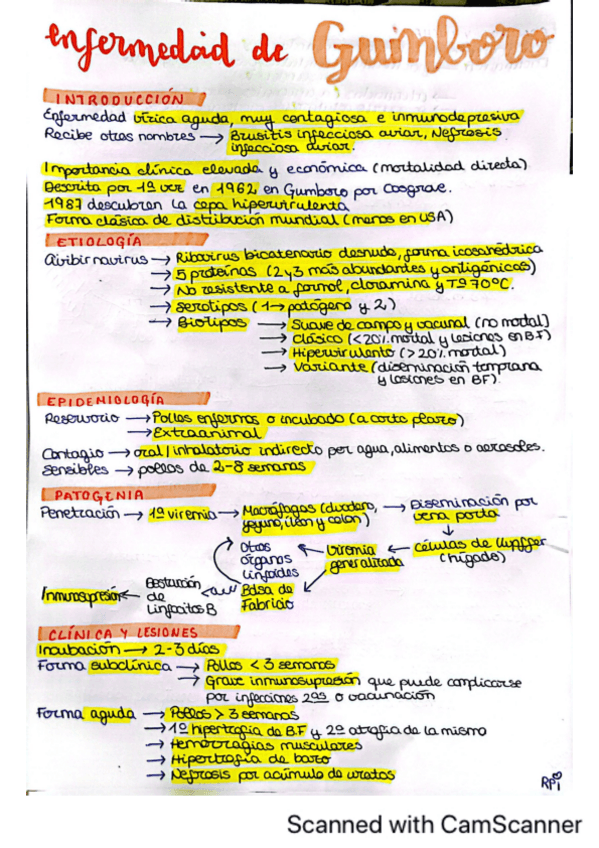 enfermedad de Gumboro
INTRODUCCIÓN
Enfermedad vírica aguda, muy contagiosa e inmunodepresiva
Recibe otros nombres → Brusitis infecciosa aviar, Nefrosis
infecciosa aviar.
Importancia clínica elevada y económica (mortalidad directa)
Descrita por 1ª vez en 1962, en Gumboro por Cosgrave.
1987 descubren la cepa hipervirulenta
Forma clásica de distribución mundial (menos en USA)
ETIOLOGÍA
Avibirnavirus → Ribovirus bicatenario desnudo, forma icosahédrica
→ 5 proteínas (2 y 3 más abundantes y antigénicas)
→ No resistente a formol, cloramina y Tª 70ºC.
→ Serotipos (1→ patógeno y 2)
→ Biotipos → Suave de campo y vacunal (no mortal)
→ Clásico (<20% mortal y lesiones en B.F)
→ Hipervirulento (>20% mortal)
→ Variante (diseminación temprana
y lesiones en BF).
EPIDEMIOLOGÍA
Reservorio → Pollos enfermos o incubado (a corto plazo)
→ Extraanimal
Contagio → oral / inhalatorio indirecto por agua, alimentos o aerosoles.
Sensibles → pollos de 2-8 semanas
PATOGENIA
Penetración → 1ª viremia → Macrófagos (duodeno, yeyuno, íleon y colon) → Diseminación por
vena porta
↓
Otros órganos linfoides ← Viremia generalizada ← células de Kupffer
(hígado)
Inmunosupresión ← Destrucción de Linfocitos B ← Bolsa de Fabricio
CLÍNICA Y LESIONES
Incubación → 2-3 días
Forma subclínica → Pollos < 3 semanas
→ Grave inmunosupresión que puede complicarse
por infecciones 2ªs o vacunación
Forma aguda → Pollos > 3 semanas
→ 1º hipertrofia de B.F y 2º atrofia de la misma
→ Hemorragias musculares
→ Hipertrofia de bazo
→ Nefrosis por acúmulo de uratos
Scanned with CamScanner